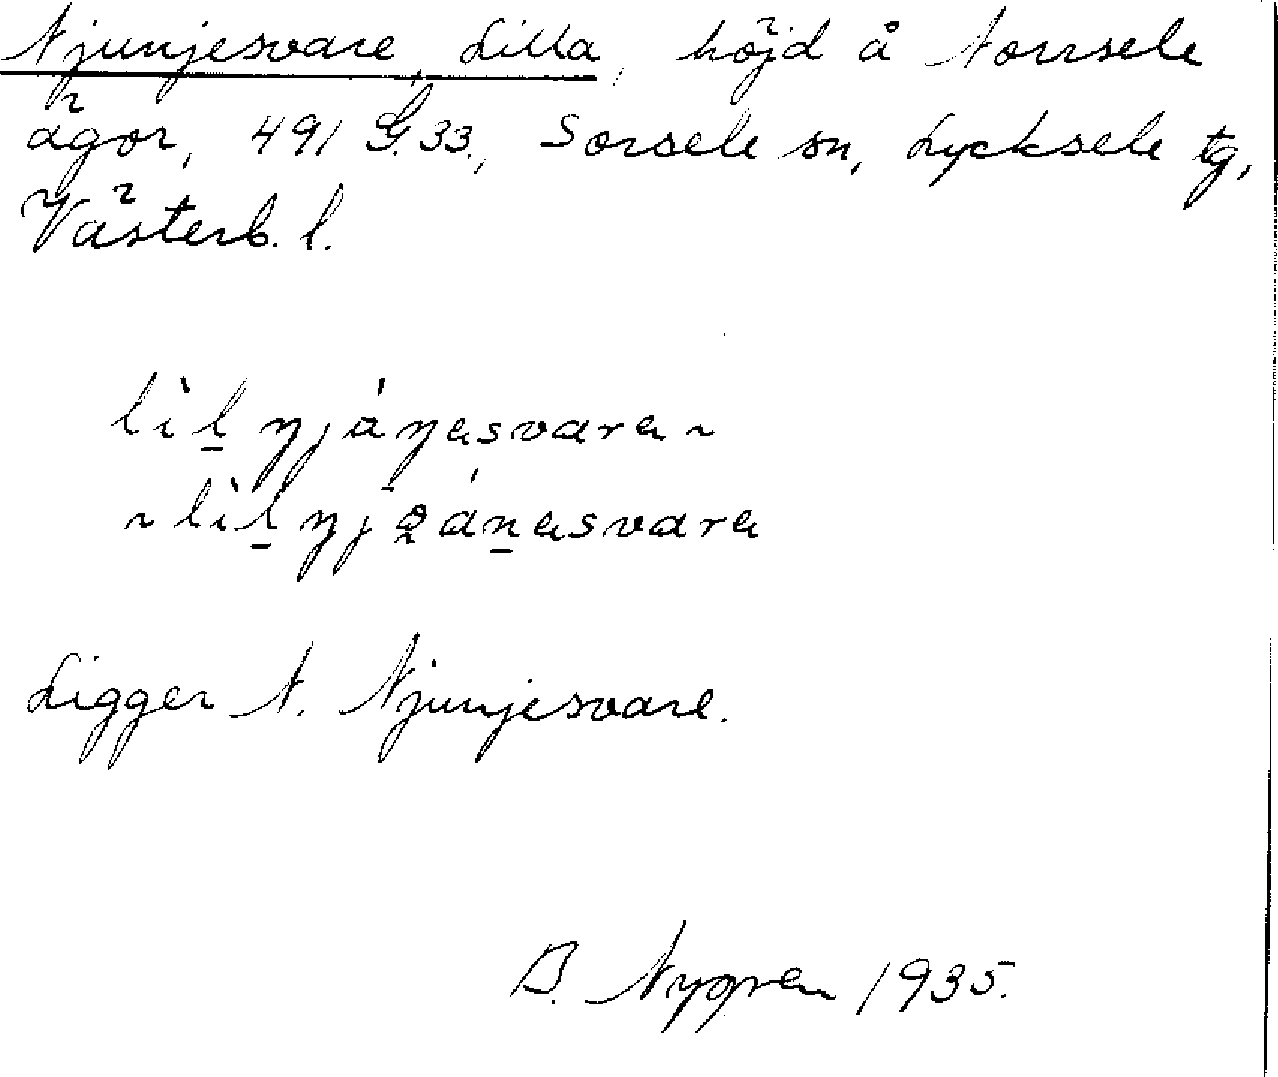 Njunjesvare, Lilla, höjd å Norrsele
ägor, 491 G. 33., Sorsele sn, Lycksele tg,
Västerb. l.
Ligger N. Njunjesvare.
B. Nygren 1935.